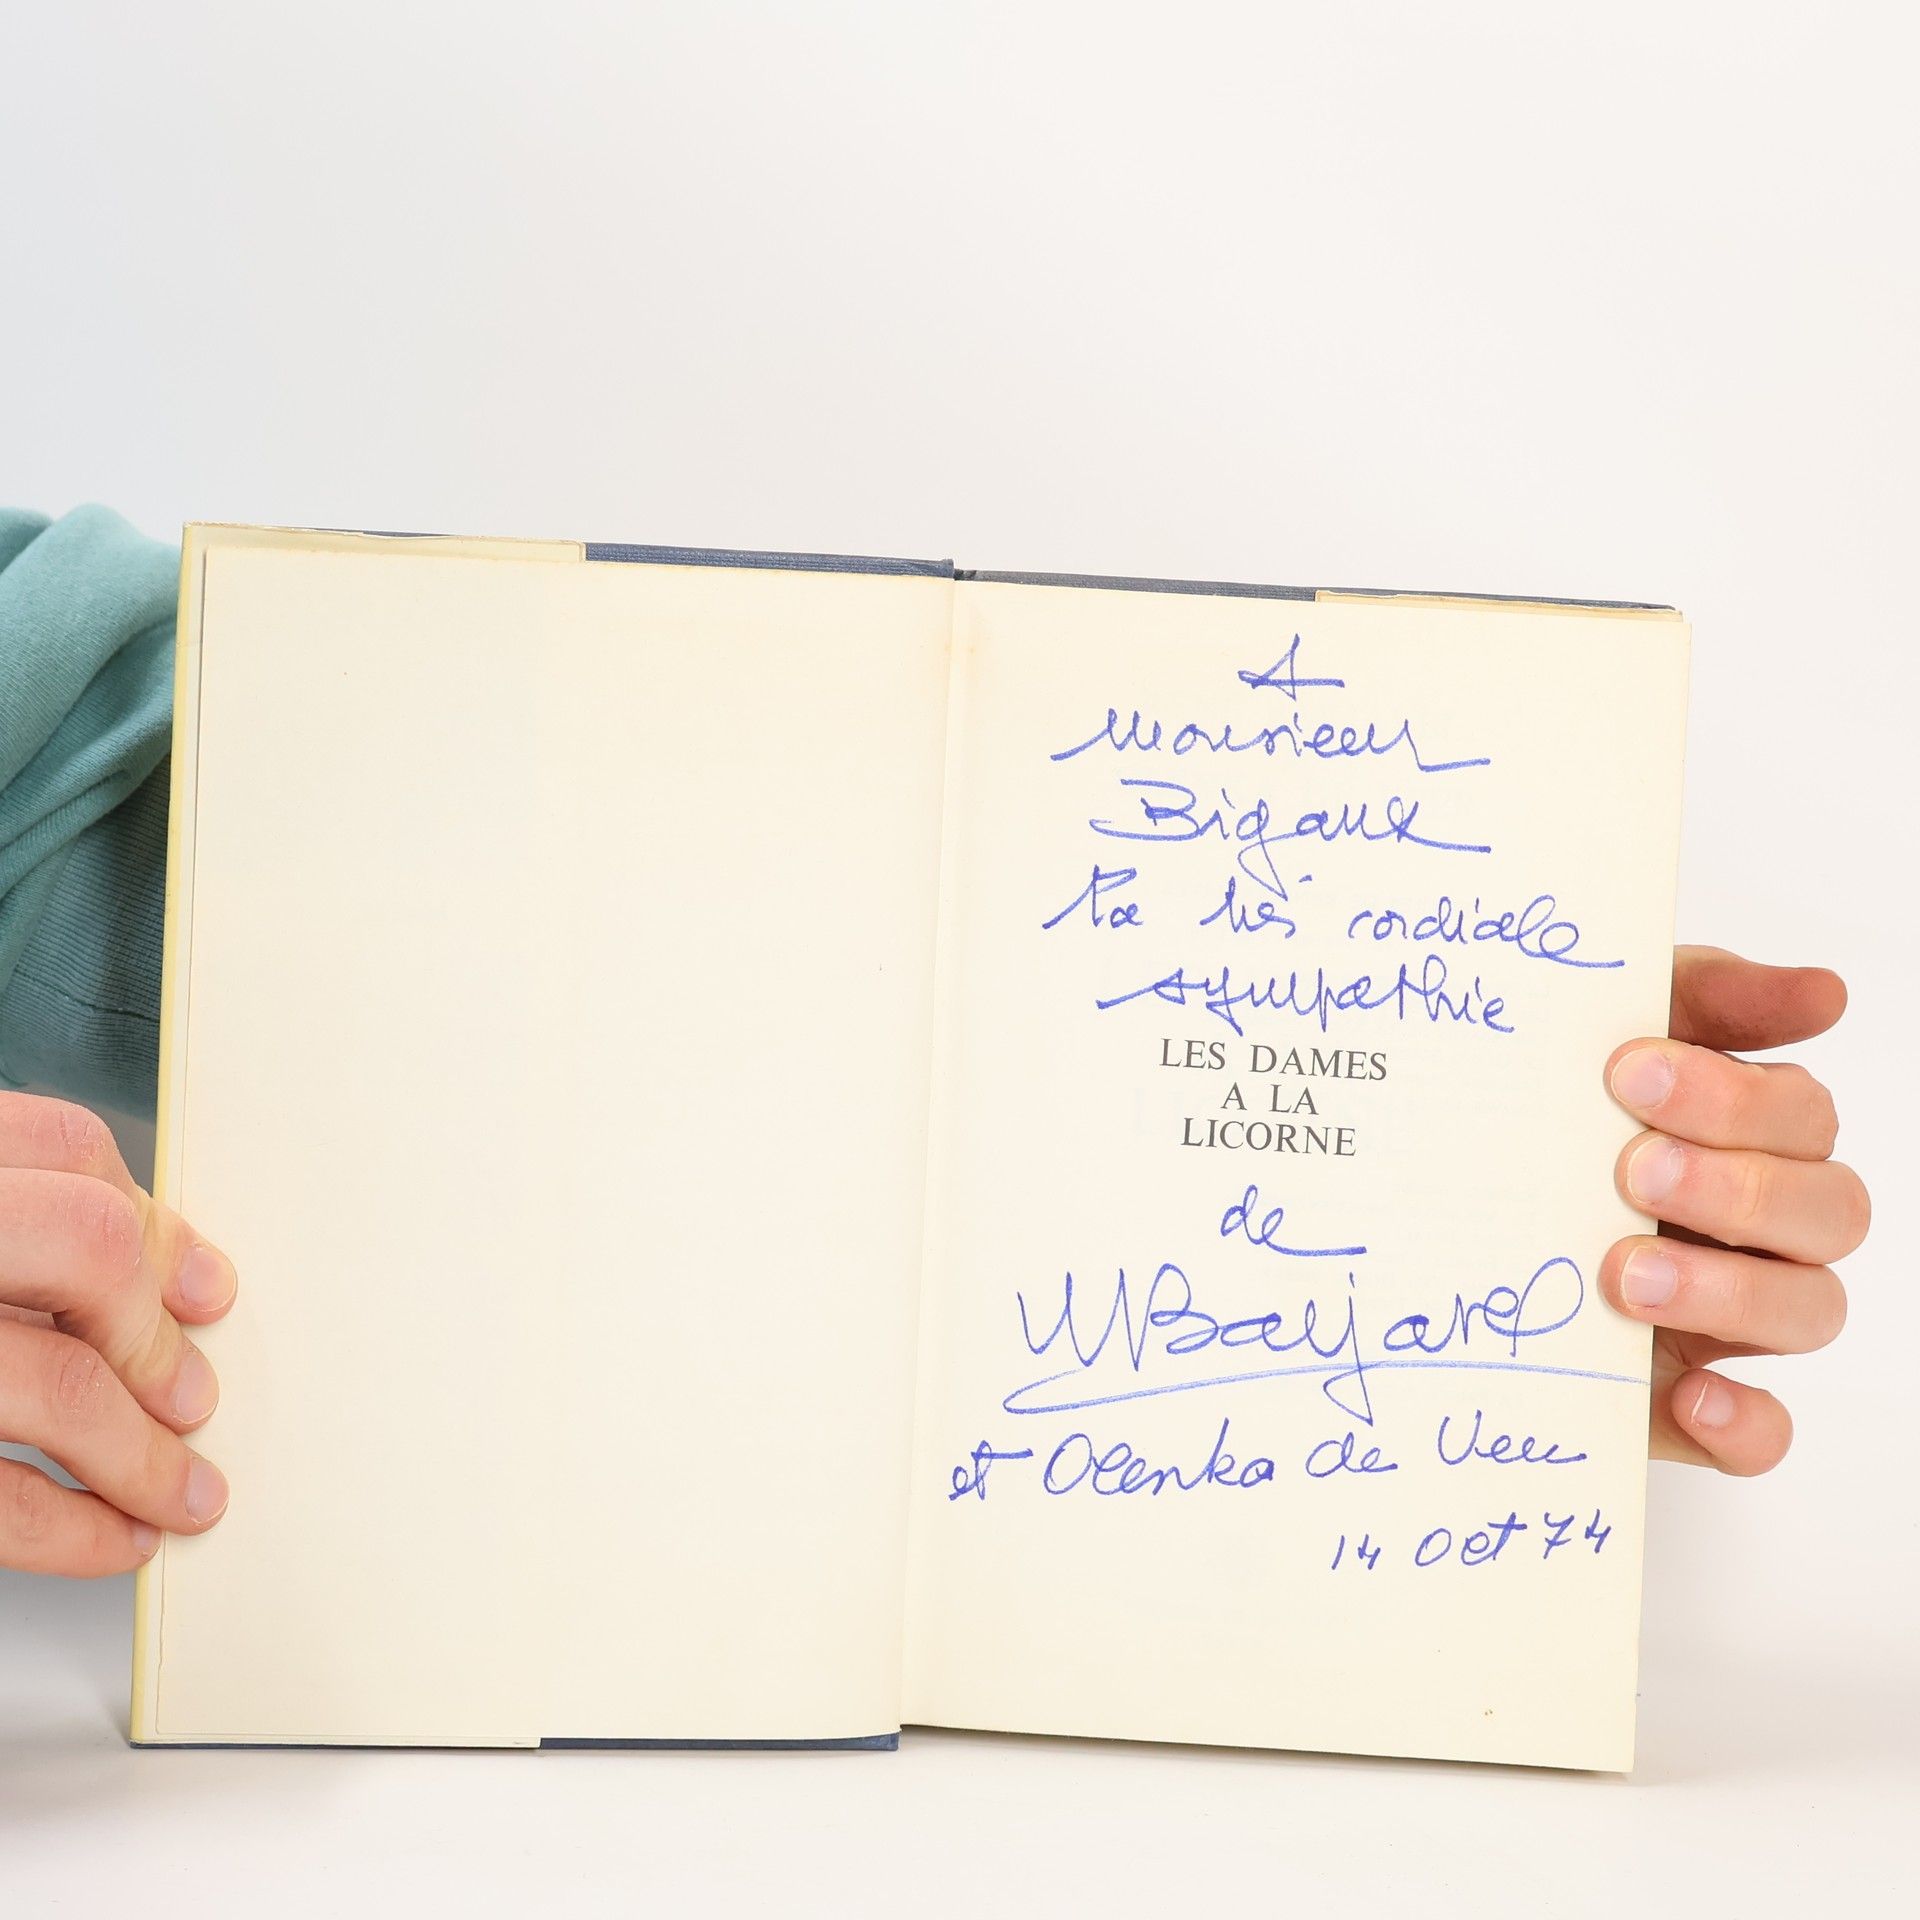 A
Monsieur
Bigaux
la très cordiale
sympathie
LES DAMES
A LA
LICORNE
de
MBarjavel
et Olenka de Veer
14 Oct 74